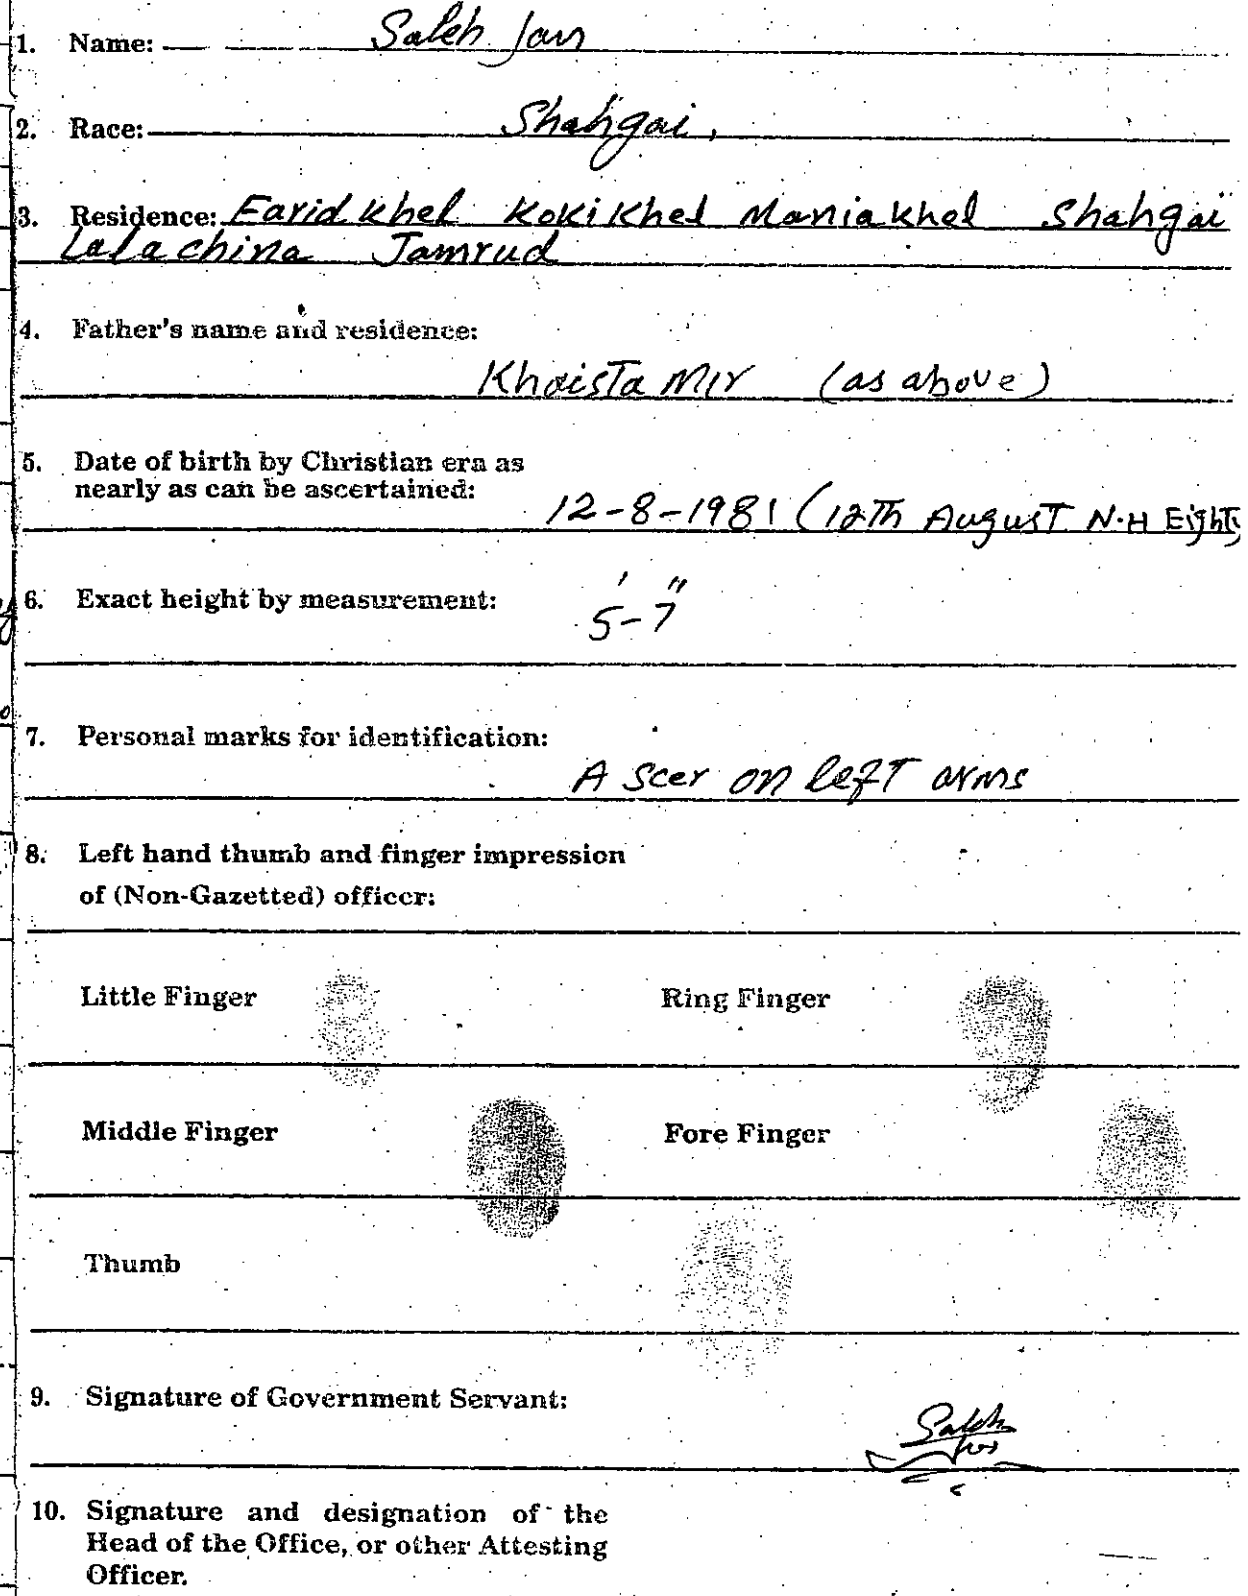 1. Name: Saleh Jan
2. Race: Shahgai,
3. Residence: Farid Khel Koki Khel Mania Khel Shahgai
Lala china Jamrud
4. Father's name and residence:
Khaista Mir (as above)
5. Date of birth by Christian era as
nearly as can be ascertained:
12-8-1981 (12Th August N.H Eighty
6. Exact height by measurement:
5'-7"
7. Personal marks for identification:
A Scer on left arms
8. Left hand thumb and finger impression
of (Non-Gazetted) officer:
Little Finger Ring Finger
Middle Finger Fore Finger
Thumb
9. Signature of Government Servant:
Saleh
Jan
10. Signature and designation of the
Head of the Office, or other Attesting
Officer.